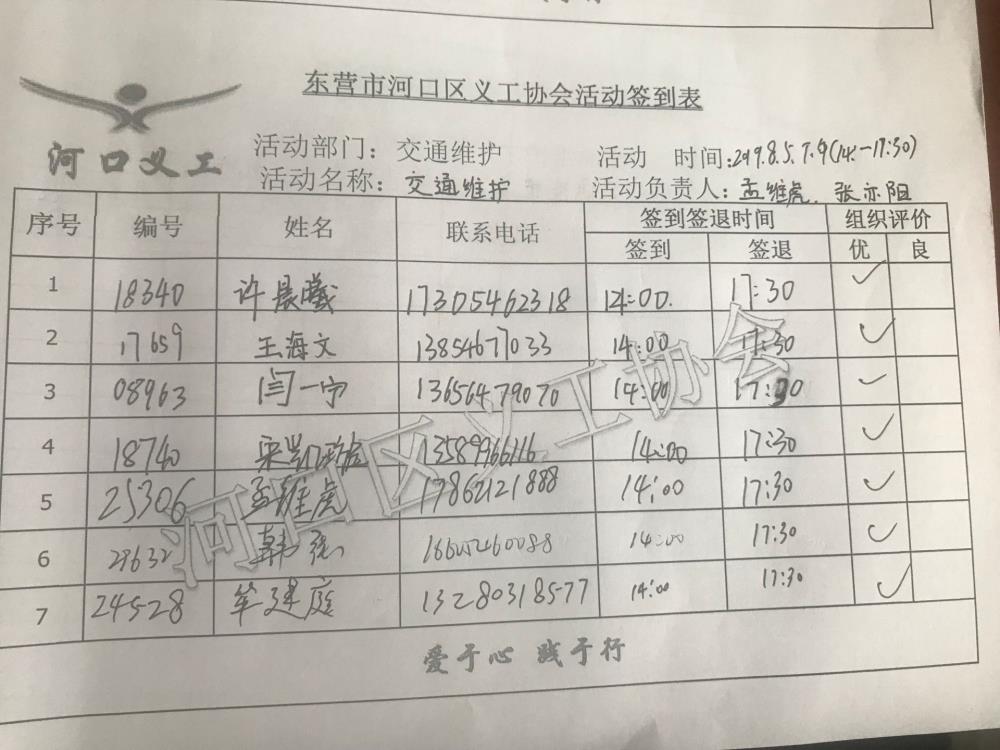 东营市河口区义工协会活动签到表
河口义工
活动部门：交通维护 活动 时间:2019.8.5.7.9(14:-17:30)
活动名称：交通维护 活动负责人:孟维虎、张亦阻
序号 编号 姓名 联系电话 签到签退时间 组织评价
签到 签退 优 良
1 18340 许晨曦 17305462318 14:00. 17:30 ✓
2 17659 王海文 13854677033 14:00 17:30 ✓
3 08963 闫一宁 13656479070 14:00 17:30 ✓
4 18740 13589966116 14:00 17:30 ✓
5 25306 孟维虎 17862121888 14:00 17:30 ✓
6 29632 韩强 14:00 17:30 ✓
7 24528 毕建庭 13280318577 14:00 17:30 ✓
河口区义工协会
爱于心 践于行